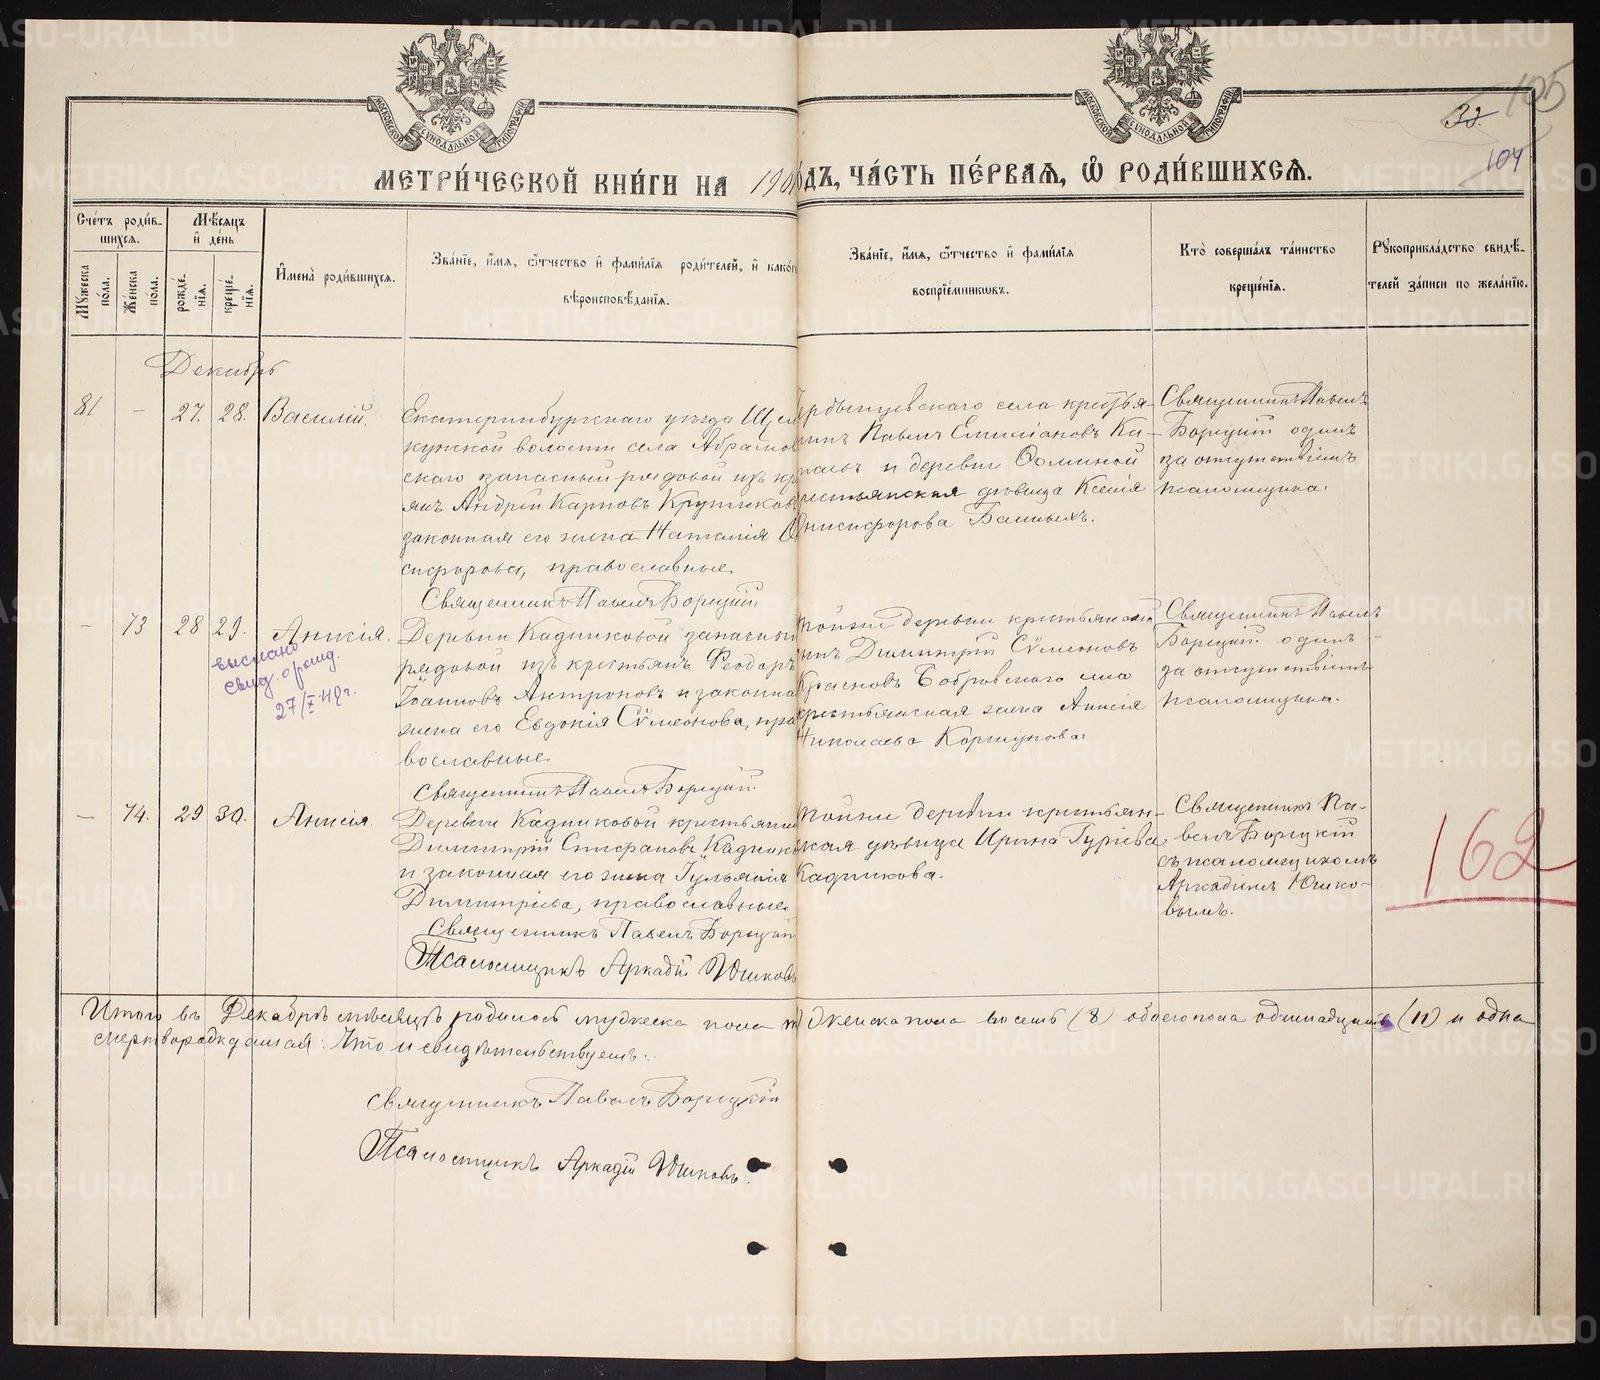 МЕТРИ́ЧЕСКОЙ КНИ́ГИ НА 190 ДЪ, ЧА́СТЬ ПЕ́РВАѦ, Ѡ҆ РОДИ́ВШИХСѦ.
105
33.
104
Сче́тъ роди́в-
шихсѧ.
Мꙋ́жеска по́ла.
Же́нска по́ла.
Мѣ́сѧцъ и҆ де́нь
рожде́-
нїѧ.
креще́-
нїѧ.
И҆мена̀ роди́вшихсѧ.
Зва́нїе, и҆́мѧ, ѻ҆́тчество и҆ фами́лїѧ роди́телей, и҆ како́г
вѣроисповѣ́данїѧ.
Зва́нїе, и҆́мѧ, ѻ҆́тчество и҆ фами́лїѧ
воспрїе́мникѡвъ.
Кто̀ соверша́лъ та́инство
креще́нїѧ.
Рꙋкоприкла́дство свидѣ́-
телей за́писи по жела́нїю.
Декабрь
81 - 27. 28. Василій.
Екатеринбургскаго уѣзда Щел
кунской волости села Абрамов
скаго запасный рядовой изъ кр
янъ Андрей Карповъ Крутиковъ
законная его жена Наталія О
сифорова, православные.
Священникъ Павелъ Борецкій
села крестья-
нинъ Павелъ Емиліановъ Ка-
и деревни Ѳоминой
крестьянская дѣвица Ксенія
Онисифорова Банныхъ.
Священникъ Павелъ
Борецкій одинъ
за отсутствіемъ
псаломщика.
- 73 28 29. Анисія.
выслано
свид. о рожд.
27/X 40 г.
Деревни Кадниковой запасный
рядовой изъ крестьянъ Ѳеодоръ
Іоанновъ Антроповъ и законная
жена его Евдокія Сѵмеонова, пра
вославные.
Священникъ Павелъ Борецкій
Той же деревни крестьян
инъ Димитрій Сѵмеоновъ
Красновъ Бобровскаго села
крестьянская жена Анисія
Николаева Коршунова.
Священникъ Павелъ
Борецкій один
за отсутствіемъ
псаломщика.
- 74. 29 30. Анисія.
Деревни Кадниковой крестьянинъ
Димитрій Стефановъ Кадников
и законная его жена Іульянія
Димитріева, православные.
Священникъ Павелъ Борецкій
Псаломщикъ Аркадій Юшковъ
Той же деревни крестьян-
ская дѣвица Ирина Гуріева
Кадникова.
Священникъ Па-
велъ Борецкій
съ псаломщикомъ
Аркадіемъ Юшко-
вымъ.
162
Итого въ Декабрѣ мѣсяцѣ родилось мужеска пола женска пола восемь (8) обоего пола одиннадцать (11) и одна
мертворожденная. Что и свидѣтельствуемъ:
Священникъ Павелъ Борецкій
Псаломщикъ Аркадій Юшковъ.
METRIKI.GASO-URAL.RU